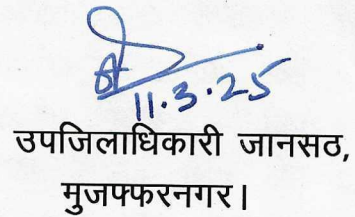 11.3.25
उपजिलाधिकारी जानसठ,
मुजफ्फरनगर।